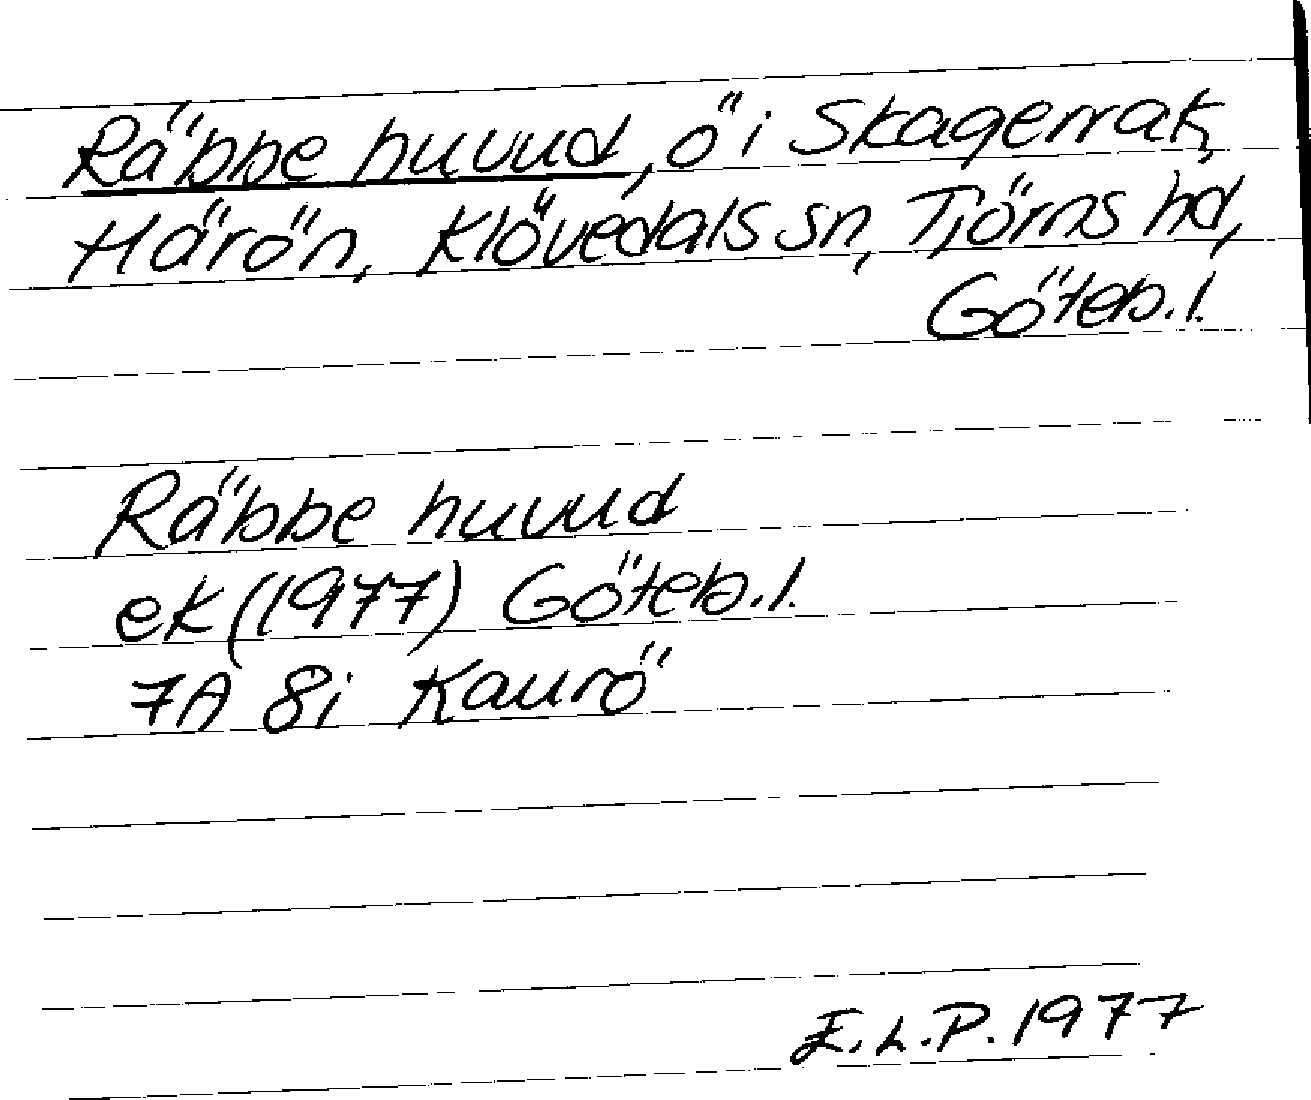 Räbbe huvud, ö i Skagerrak,
Härön, Klövedals sn, Tjörns hd,
Göteb.l.
Räbbe huvud
ek (1977) Göteb.l.
7A 8i Kaurö
E.L.P. 1977